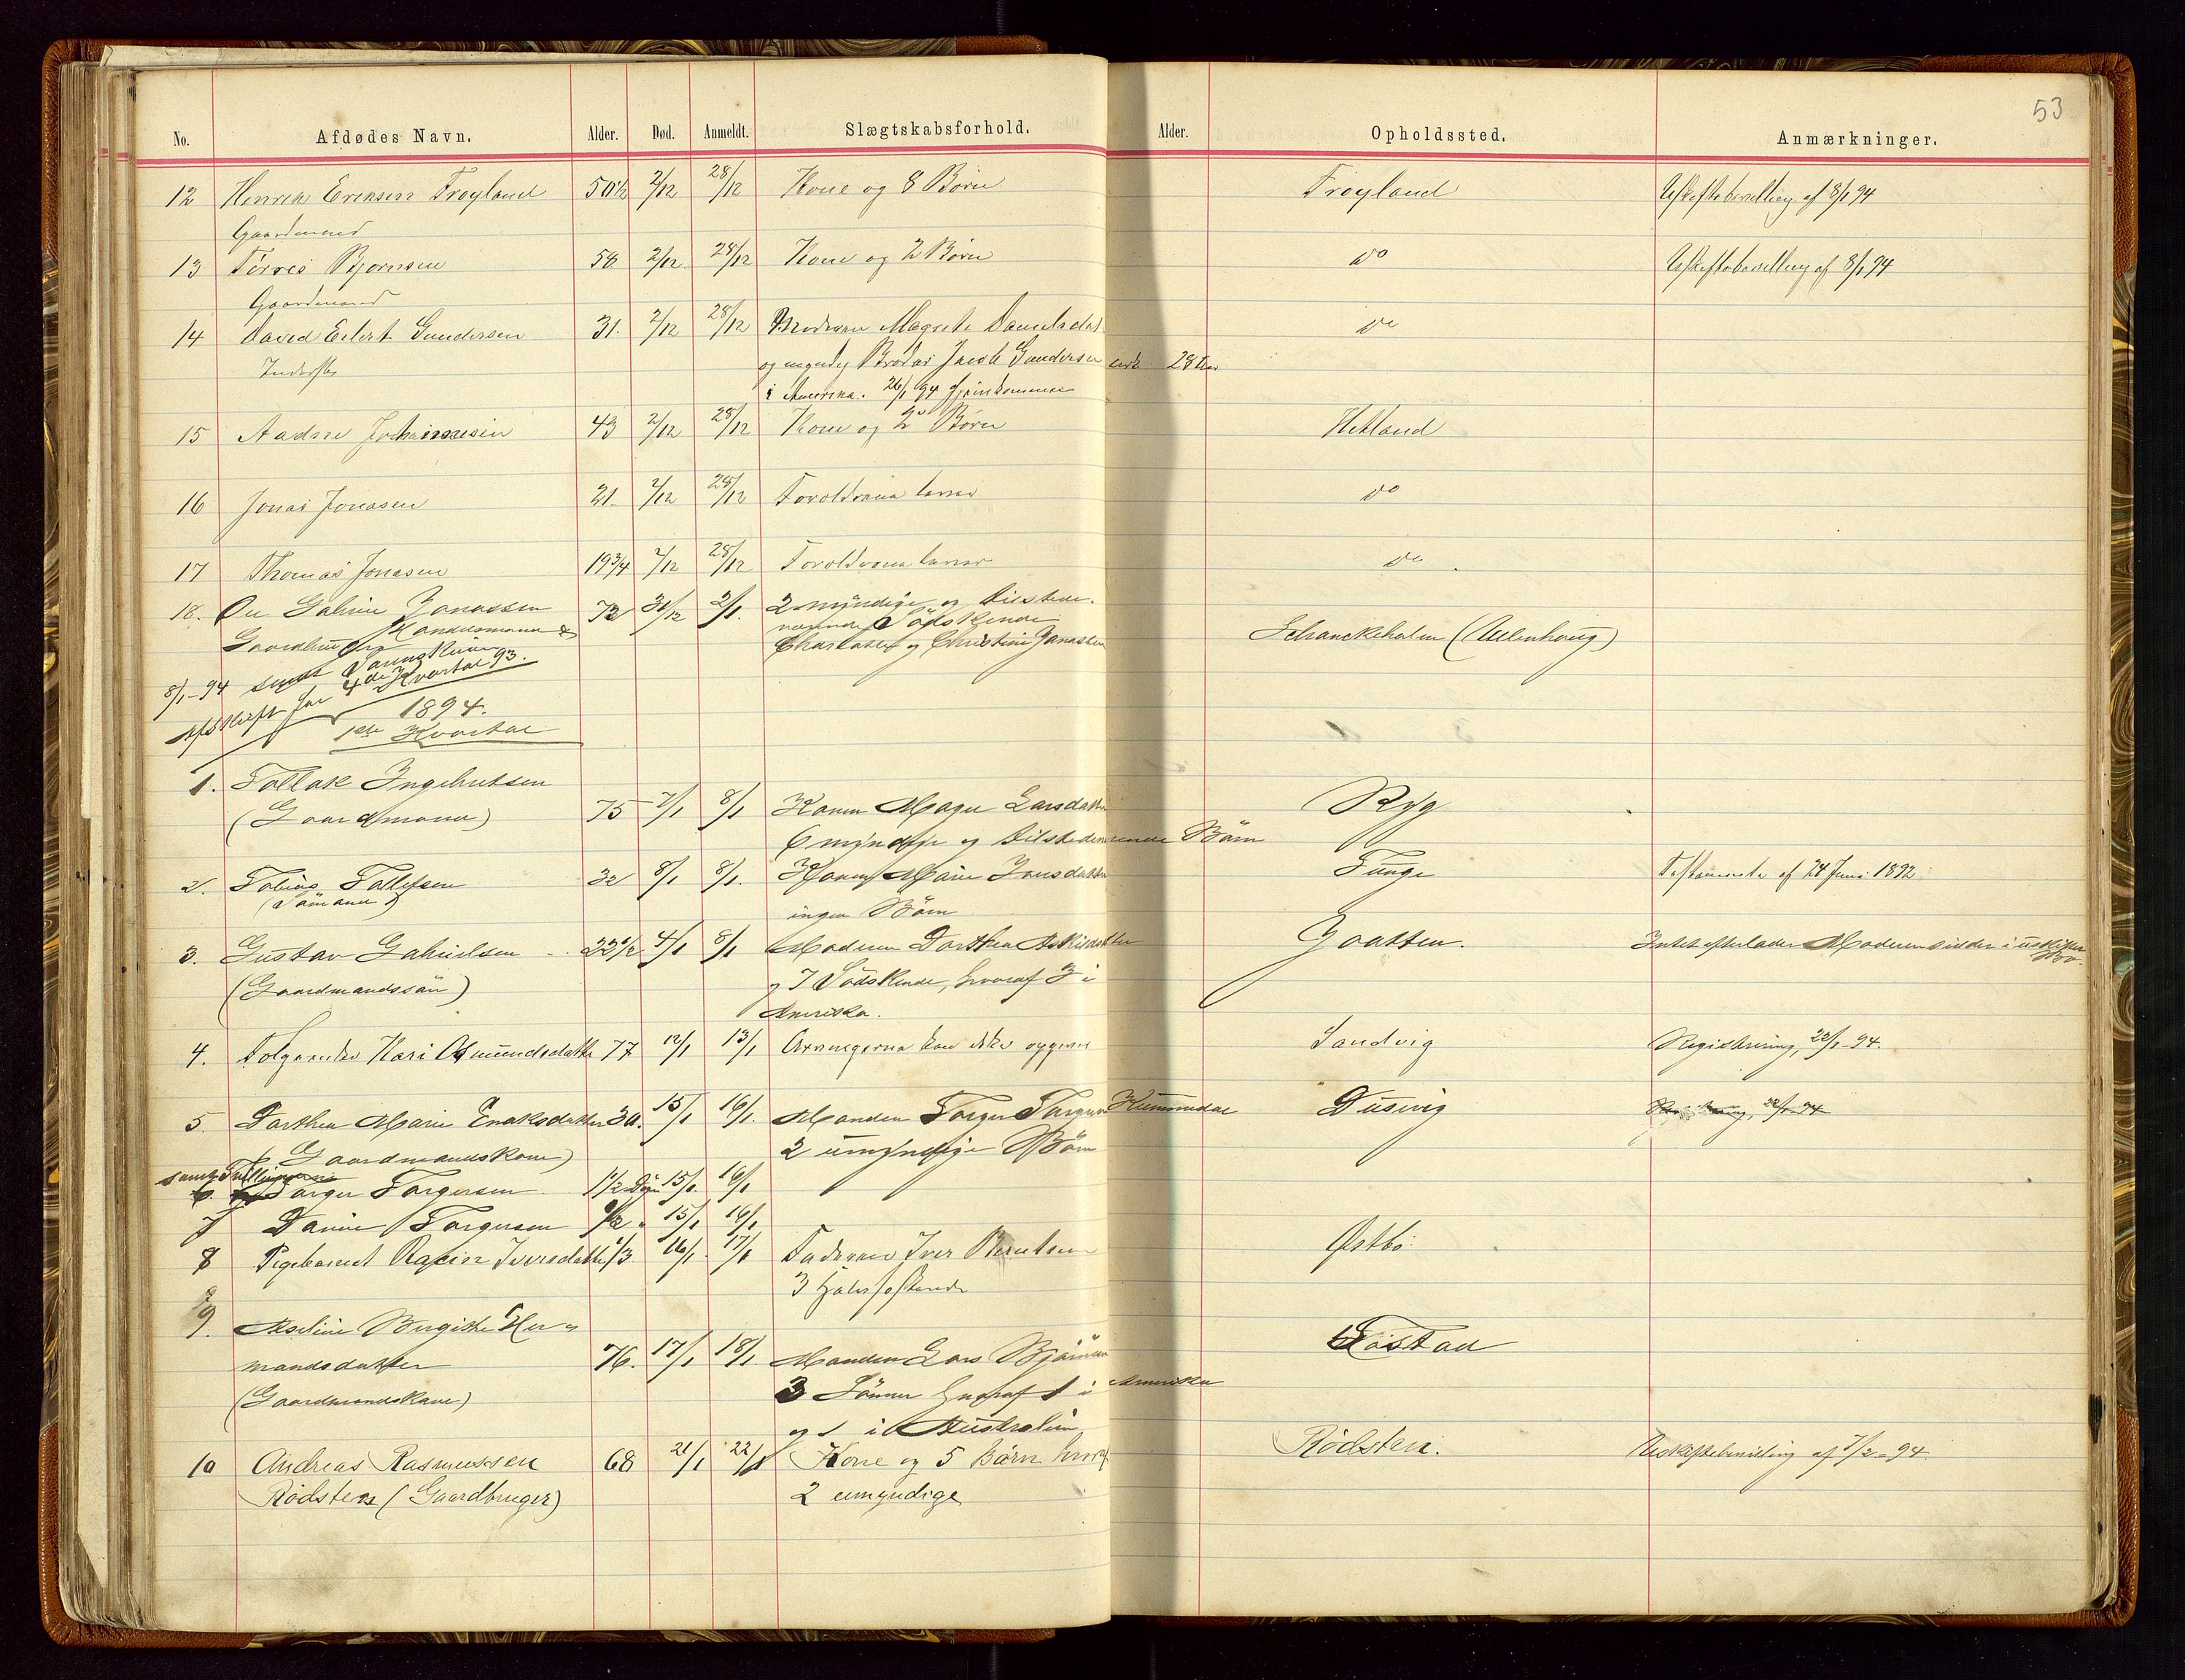 53
No. Afdødes Navn. Alder. Død. Anmeldt. Slægtskabsforhold. Alder. Opholdssted. Anmærkninger.
12 Henrik Eriksen Frøyland 50½ 2/12 28/12 Kone og 8 Børn Frøyland Uskiftebevilling af 8/1 94
Gaardmand
13 Torres Bjørnsen 58 2/12 28/12 Kone og 2 Børn do Uskiftebevilling af 8/1 94
Gaardmand
14 David Eilert Gundersen 31. 2/12 28/12 Moderen Magrete Danielsdat do
Inderst og myndig Broder Jacob Gundersen 28 Aar
i Amerika. 26/1 94 hjemkommen
15 Aadne Johannesen 43 2/12 28/12 Kone og 2 Børn Hetland
16 Jonas Jonasen 21. 2/12 28/12 Forældrene lever do
17 Thomas Jonasen 19¾ 2/12 28/12 Forældrene lever do
18. Ole Gabriel Jonassen 72 31/12 2/1. 2 myndige og tilstede-
Handelsmand & værende Södskende
Gaardbruger Charlotte og Christine Jonassen Schanckeholm (Aalenhoug)
8/1-94 sendt
Afskrift for 4de Kvartal 93.
1894.
1ste Kvartal
1. Tollak Ingebretsen
(Gaardmand) 75 7/1 8/1 Konen Larsdatter Ryg
6 myndige og tilstedeværende Börn
2. Tobias Tollefsen 32 8/1 8/1. Konen Marie Jonsdatter Tunge Testamente af 24 Juni 1892
(Sömand) ingen Börn
3. Gustav Gabrielsen 22½ 4/1 8/1 Moderen Dorthea Jaatten. Intet efterlader Moderen sidder i uskiftet Bo.
(Gaardmandssön) og 7 Södskende, hvoraf 3 i
Amerika.
4. Kari Asmundsdatter 77 12/1 13/1 Arvingerne kan ikke opgives Sandvig Registrering, 22/1-94.
5. Dorthea Marie Enoksdatter 30. 15/1 16/1. Manden Torger Torgersen Hummedal Dusevig
(Gaardmandskone) 2 umyndige Börn
samt Tvillingerne
6. Torger Torgersen 1½ Dögn 15/1. 16/1
7 Daniel Torgersen ½ " 15/1 16/1
8 Pigebarnet Iversdatter 1/3 16/1 17/1 Faderen Iver Berntsen Østbø
3 Halvsøskende
9. Birgitte Her-
mandsdatter 76. 17/1 18/1. Manden Lars Björnsen Töstad
(Gaardmandskone) 3 Sönner hvoraf 1 i Amerika
og 1 i Australien
10 Andreas Rasmussen 68 21/1 22/1 Kone og 5 Börn hvoraf Rödsten. Uskiftebevilling af 7/2-94
Rödsten (Gaardbruger) 2 umyndige